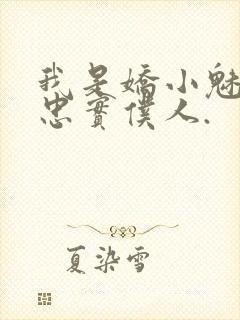 我是嬌小魅
忠實僕人.
夏染雪